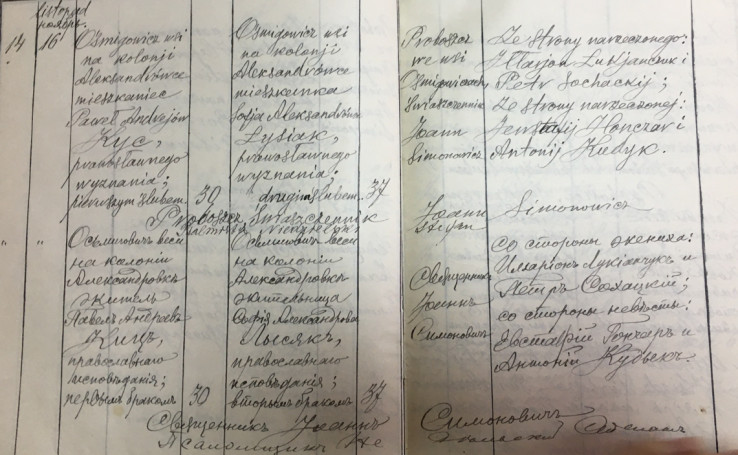 Listopad
ноябрь.
14
16
Ośmigowicz wsi
na kolonji
Aleksandrówce
mieszkaniec
Paweł Andrejów
Kyc,
prawosławnego
wyznania;
pierwszym ślubem.
30
Ośmigowicz wsi
na kolonji
Aleksandrówce
mieszkanka
Sofja Aleksandrowa
Łysiak,
prawosławnego
wyznania;
drugim ślubem.
37
Proboszcz Świaszczennik
Proboszcz
we wsi
Ośmigowiczach
Świaszczennik
Joann
Simonowicz
Ze strony narzeczonego:
Iłarjon Łukjanczuk i
Petr Sochackij;
Ze strony narzeczonej:
Jewstafij Honczar i
Antonij Kudyk.
Joann
Simonowicz
" "
Осьмиговичъ веси
на колоніи
Александровкѣ
житель
Павелъ Андреевъ
Кицъ,
православнаго
исповѣданія;
первымъ бракомъ
30
Осьмиговичъ веси
на колоніи
Александровкѣ
жительница
Софія Александрова
Лысякъ,
православнаго
исповѣданія;
вторымъ бракомъ
37
Священникъ Іоаннъ
Псаломщикъ
Священникъ
Іоаннъ
Симоновичъ
со стороны жениха:
Иларіонъ Лукіанчукъ и
Петръ Сохацкій;
со стороны невѣсты:
Евстафій Гончаръ и
Антоній Кудыкъ.
Симоновичъ